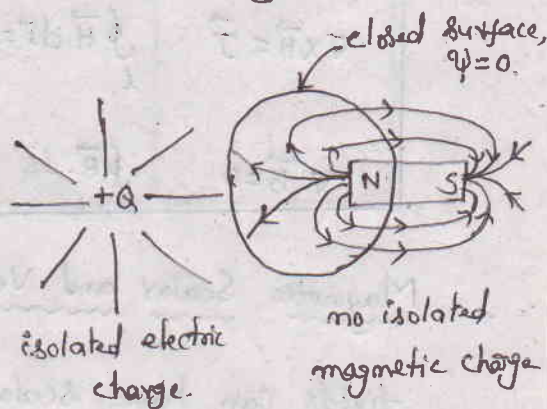 closed surface,
ψ=0.
+Q
N S
isolated electric
charge.
no isolated
magnetic charge